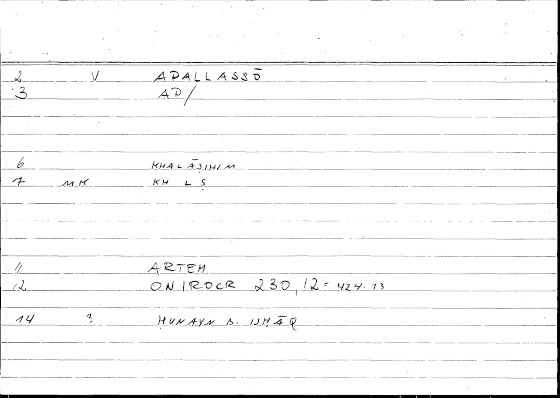 2 V APALLASSŌ
3 AP/
6 KHALĀṢIHIM
7 MK KH L Ṣ
11 ARTEM
12 ONIROCR 230,12 = 424.13
14 ? ḤUNAYN B. ISḤĀQ